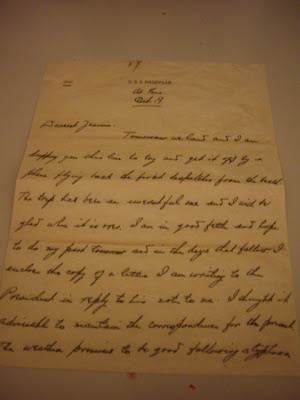 U.S.S. NASHVILLE
Oct. 19
Dearest Jeannie
Tomorrow we land and I am
dropping you this line to try and get it off by a
plane flying back the first despatches from the beach.
The trip has been an uneventful one and I will be
glad when it is over. I am in good fettle and hope
to do my part tomorrow and in the days that follow. I
enclose the copy of a letter I am writing to the
President in reply to his note to me. I thought it
advisable to maintain the correspondence for the present.
The weather promises to be good following a typhoon